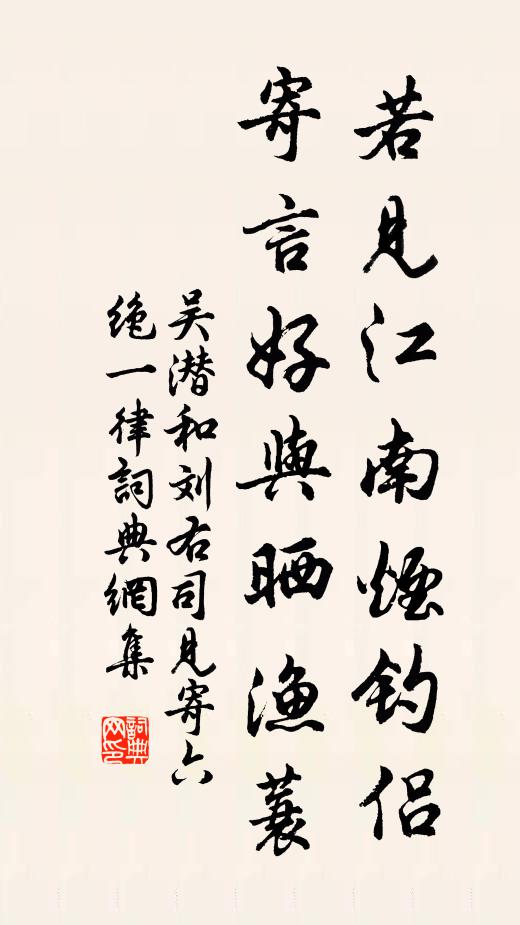 若见江南烟钓侣
寄言好與晒渔蓑
吴潜和刘右司见寄六
绝一律詞典網集
詞典網印